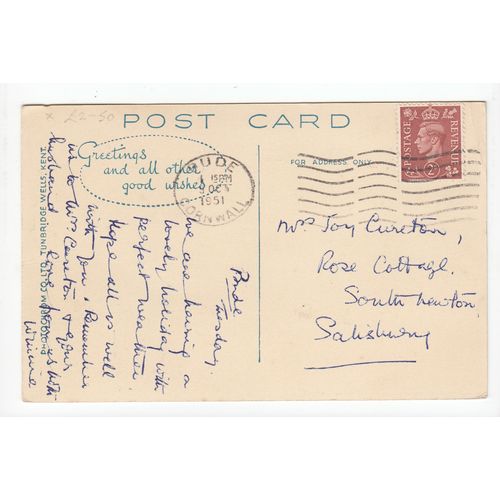 x £2-50
POST CARD
Greetings
and all other
good wishes
FOR ADDRESS ONLY
BUDE
15 PM
OC
1951
CORNWALL
POSTAGE
REVENUE
2
Mrs Joy Cureton,
Rose Cottage,
South Newton
Salisbury
Bude
Tuesday.
We are having a
lovely holiday with
perfect weather.
Hope all is well
with you. Remember
us to Mrs Cureton & your
husband
love from us both
Winnie
PHOTOCHROM CO. LTD. TUNBRIDGE WELLS, KENT.